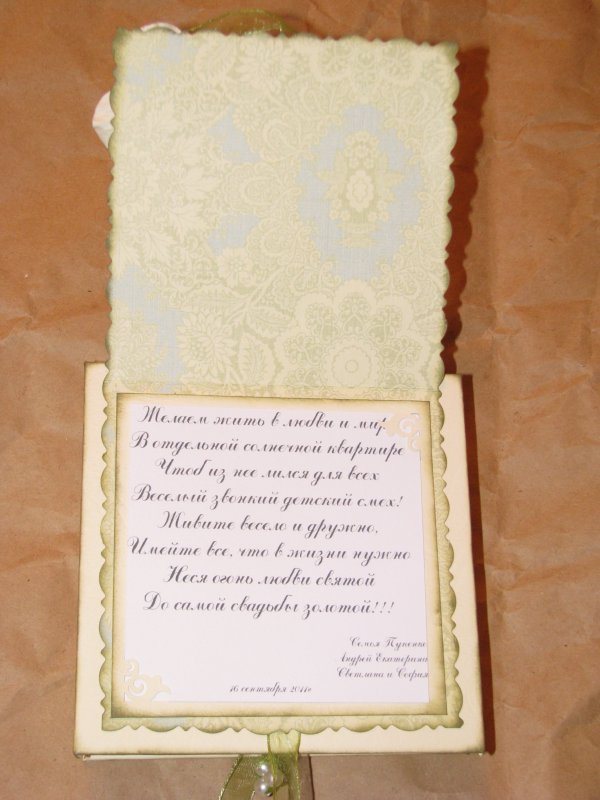 Желаем жить в любви и мир
В отдельной солнечной квартире
Чтоб из нее лился для всех
Веселый звонкий детский смех!
Живите весело и дружно,
Имейте все, что в жизни нужно
Неся огонь любви святой
До самой свадьбы золотой!!!
Семья Пупенко
Андрей Екатерина
Светлана и София
16 сентября 2011г